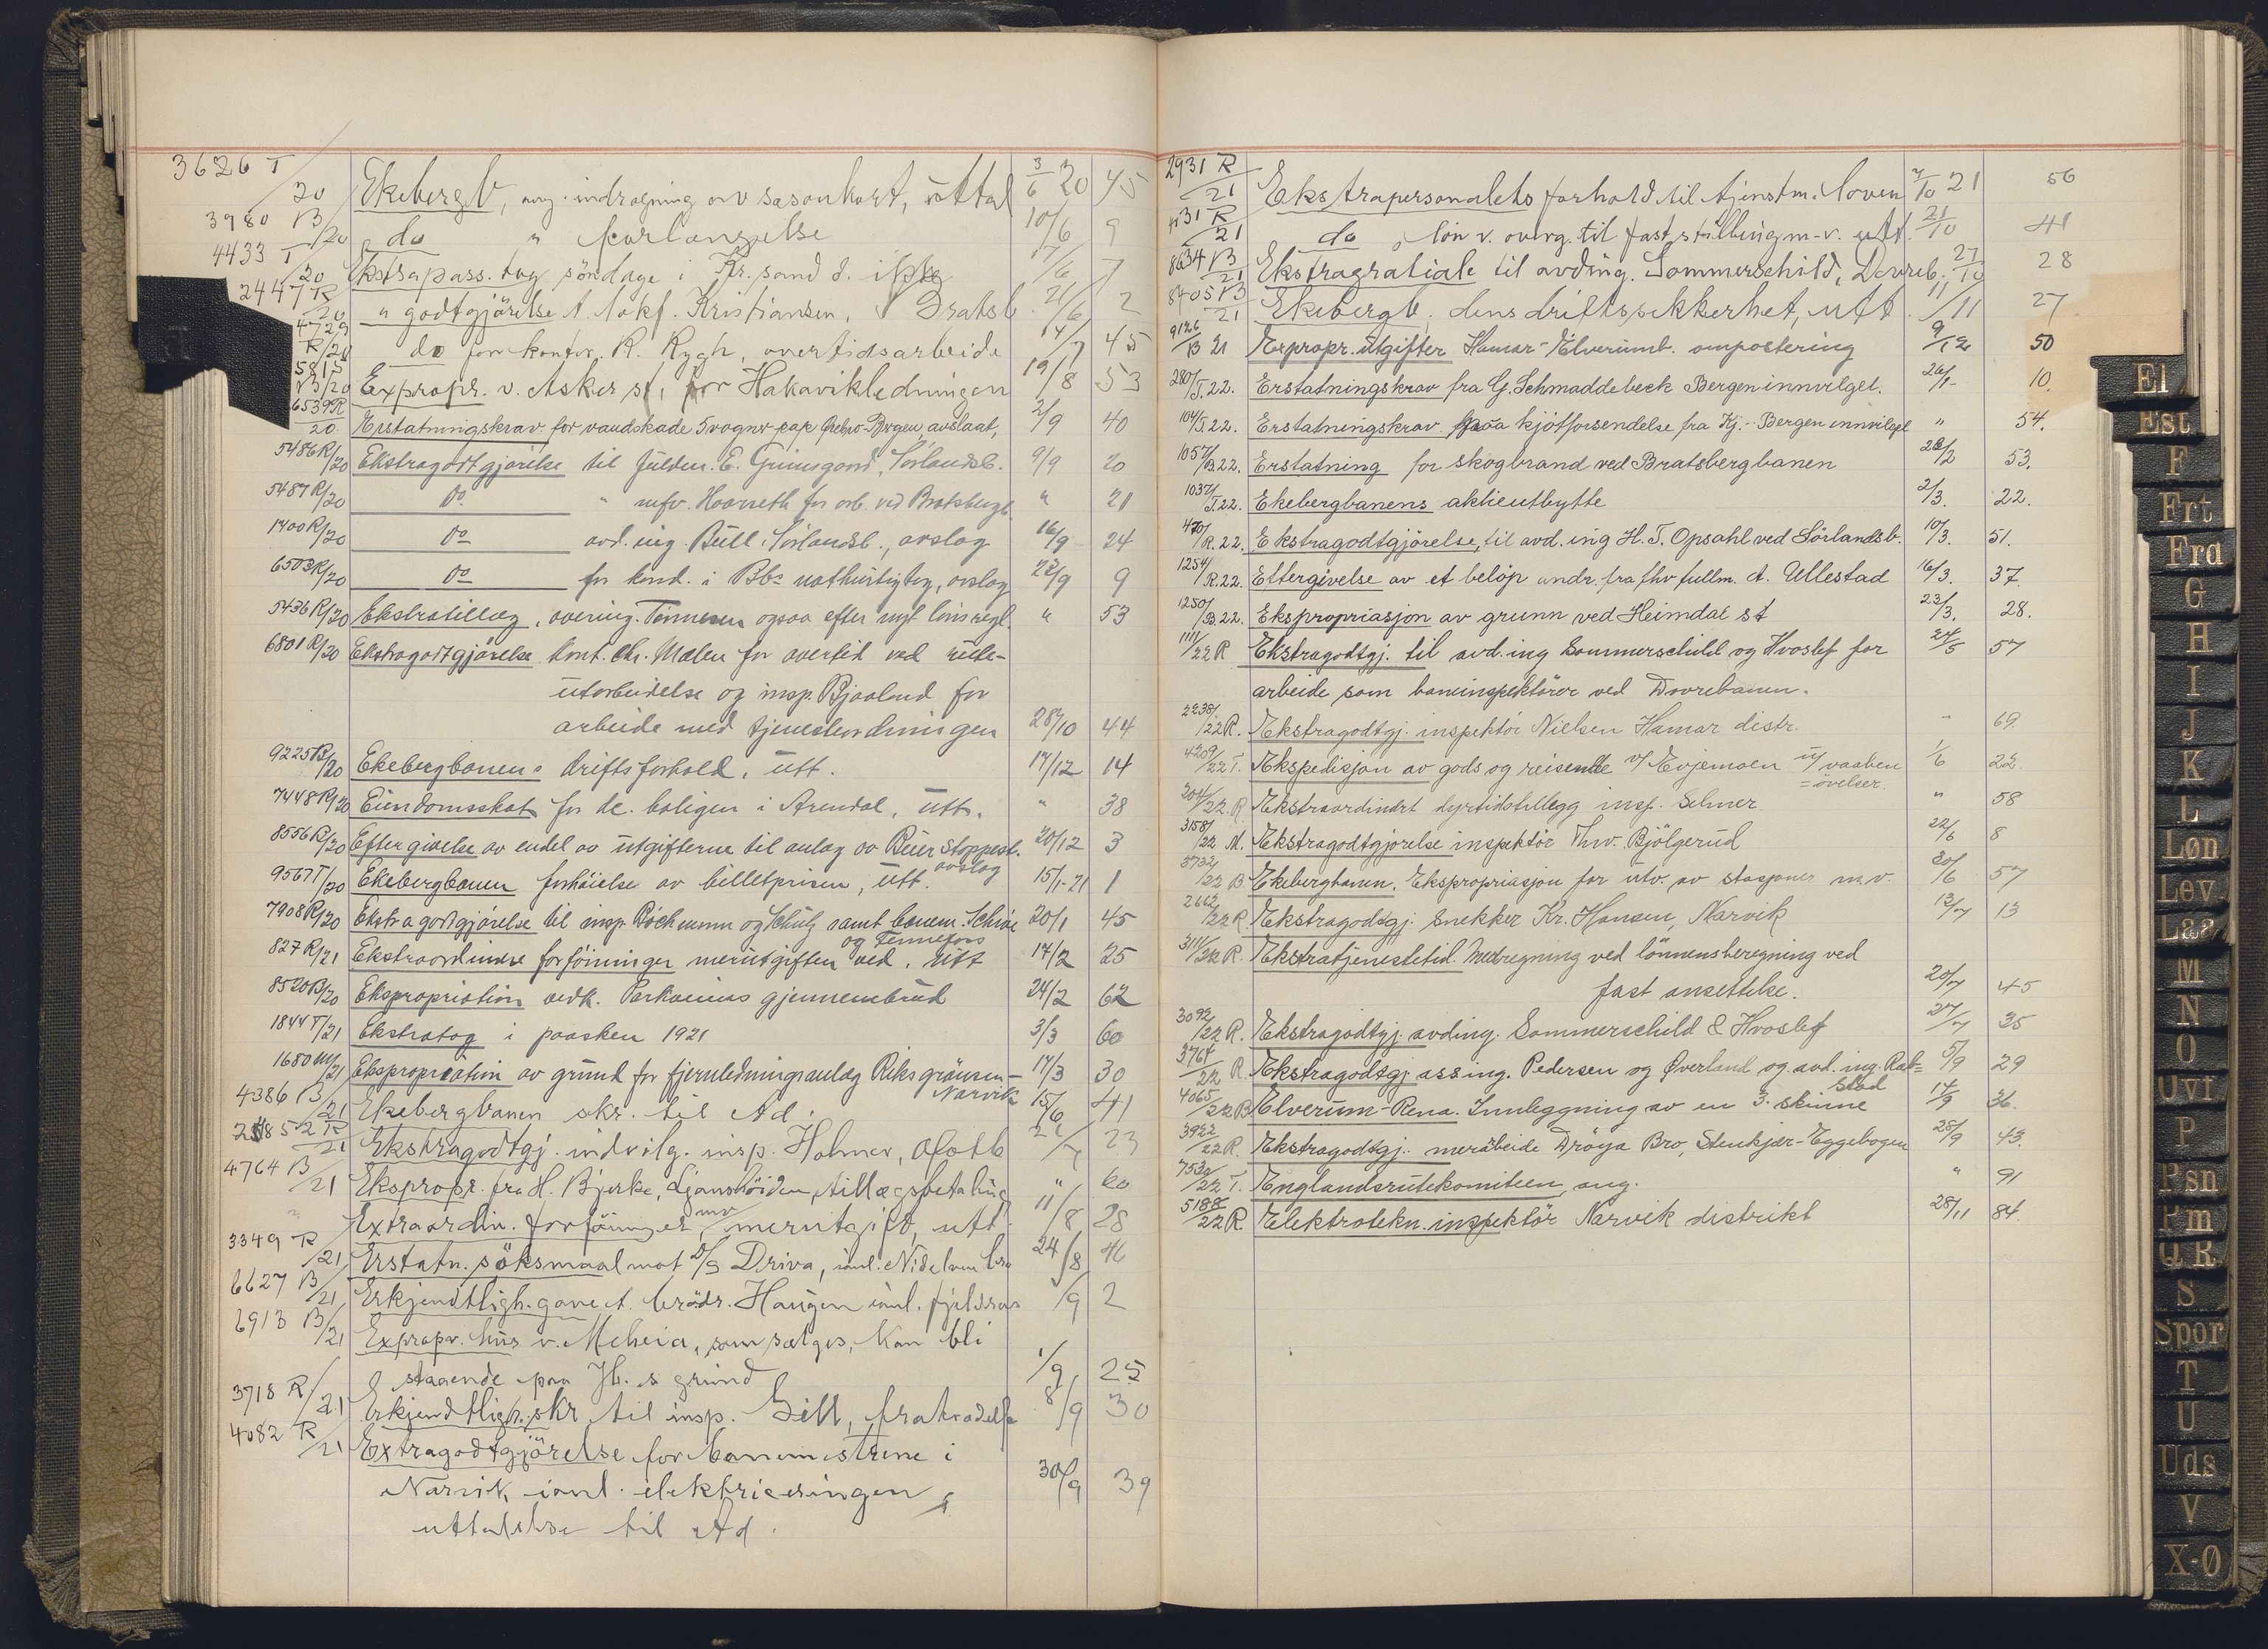 3626 T/20 Ekebergb, ang. inddragning av sæsonkort, uttal 3/6 20 45
3980 B/20 do " forlængelse 10/6 9
4433 T/20 Ekstrapass. tog söndage i Kr.sand d. ikke 17/6 7
2447 R/20 " godtgjörelse t. lokf. Kristiansen, Bratsb. 21/6 2
4729 R/20 do for kontor. R. Rygh, overtidsarbeide 14/7 45
5815 B/20 Expropr. v. Asker st, for Hakavikledningen 19/8 53
6539 R/20 Erstatningskrav for vandskade 5 vogner pap Örebro-Bergen, avslaat, 2/9 40
5486 R/20 Ekstragodtgjörelse til fuldm. E. Grimsgaard, Sörlandsb. 9/9 20
5487 R/20 Do " for arb. ved Bratsbergb. " 21
1400 R/20 Do avd. ing. Bull, Sörlandsb., avslag 16/9 24
6503 R/20 Do for kond. i Bbs nathurtigtog, avslag 22/9 9
5436 R/20 Ekstratillæg, overing. Tönnesen ogsaa efter nyt lönsregl. " 53
6801 R/20 Ekstragodtgjörelse kont. Chr. Mælen for overtid ved rute-
utarbeidelse og insp. Bjaaland for
arbeide med tjenesteordningen 28/10 44
9225 B/20 Ekebergbanens driftsforhold, utt. 17/12 14
7448 R/20 Eiendomsskat for de. boliger i Arendal, utt. " 38
8556 B/20 Eftergivelse av endel av utgifterne til anlæg av Beier stoppest. 20/12 3
avslag
9567 T/20 Ekebergbanen forhöielse av billetprisen, utt. 15/1-21 1
7908 R/20 Ekstragodtgjörelse til insp. Röckmann og Schulz samt banem. Schröe 20/1 45
og Tennefors
827 R/21 Ekstraordinære forföininger merutgifter ved, utt 17/2 25
8520 B/20 Ekspropriation vedk. Parkveiens gjennembrud 24/2 62
1844 T/21 Ekstratog i paasken 1921 3/3 60
1680 M/21 Ekspropriation av grund for fjernledningsanlæg Riksgrænsen- 17/3 30
Narvik
4386 B/21 Ekebergbanen skr. til Ad. 15/6 41
2852 R/21 Ekstragodtgj. indvilg. insp. Holmer, Ofotb 21/7 23
4764 B/21 Ekspropr. fra H. Bjerke, Ljanshöiden, tillægsbetaling " 60
Extraordin. forföininger mv merutgift, utt. 11/8 28
3349 R/21 Erstatn. söksmaal mot D/S Driva, anl. Nidelven bro 24/8 46
6627 B/21 Erkjendtligh. gave t. brödr. Haugen anl. fjeldras /9 2
6913 B/21 Expropr. hus v. Meheia, som sælges, kan bli
staaende paa Jb.s grund 1/9 25
3718 R/21 Erkjendtligh. skr. til insp. Gill, fratrædelse 8/9 30
4082 R/21 Extragodtgjörelse for banemestrene i
Narvik anl. elektriseringen,
uttalelse til Ad. 30/9 39
2931 R/21 Ekstrapersonalets forhold til tjenstm. loven 7/10 21 56
31 R/21 do lön v. overg. til fast stilling m.v. utt. 21/10 41
8634 B/21 Ekstragratiale til avding. Sommerschild, Dovreb. 27/10 28
8405 B/21 Ekebergb. dens driftssikkerhet, utt 11/11 27
9126/B 21 Expropr. utgifter Hamar-Elverumb. ompostering 9/12 50
280/T.22. Erstatningskrav fra G. Schmaddebeck Bergen innvilget. 26/1- 10.
104/T.22. Erstatningskrav kjötforsendelse fra Kj.- Bergen innvilget " 54.
1057/B.22. Erstatning for skogbrand ved Bratsbergbanen 28/2 53.
1037/T.22. Ekebergbanens aktieutbytte 2/3. 22.
470/R.22. Ekstragodtgjörelse, til avd. ing H. T. Opsahl ved Sörlandsb. 10/3. 51.
1254/R.22. Eftergivelse av et belöp andr. fra fhv fullm. A. Ullestad 16/3. 37.
1250/B.22. Ekspropriasjon av grunn ved Heimdal st 23/3. 28.
1111/22 R Ekstragodtgj. til avd. ing Sommerschild og Hvoslef for 24/5 57
arbeide som baneinspektörer ved Dovrebanen.
2238/22 R. Ekstragodtgj. inspektör Nielsen Hamar distr. " 69.
4209/22 T. Ekspedisjon av gods og reisende v/ Evjemoen u/ vaaben 1/6 22.
=övelser.
204/22. R Ekstraordinært dyrtidstillegg insp. Selmer " 58
3158/22 M. Ekstragodtgjörelse inspektör Thv. Bjölgerud 22/6 8
3732/22 B Ekebergbanen. Ekspropriasjon for utv. av stasjoner m.v. 30/6 57
2662/22 R. Ekstragodtgj. Snekker Kr. Hansen, Narvik 13/7 13
3111/22 R. Ekstratjenestetid. Medregning ved lönnensberegning ved
fast ansettelse. 20/7 45
3092/22 R. Ekstragodtgj. avding. Sommerschild & Hvoslef 27/7 35
3764/22 R. Ekstragodtgj. assing. Pedersen og Øverland og avd. ing. Rab= 5/9 29
stad
4065/22 B Elverum-Rena. Innleggning av en 3. skinne 14/9 36.
3922/22 R. Ekstragodtgj. merarbeide Dröya Bro, Stenkjær-Eggebogen 28/9 43.
7530/22 T. Englandsrutekomiteen, ang. " 91
5188/22 R. Elektrotekn. inspektör Narvik distrikt 28/11 84.
El
Est
F
Frt
Frd
G
H
I
J
K
L
Løn
Lev.
Laa
M
N
O
Ovf
P
Psn
Pm
Q R
S
Spor
T
U
Uds
V
X-Ø